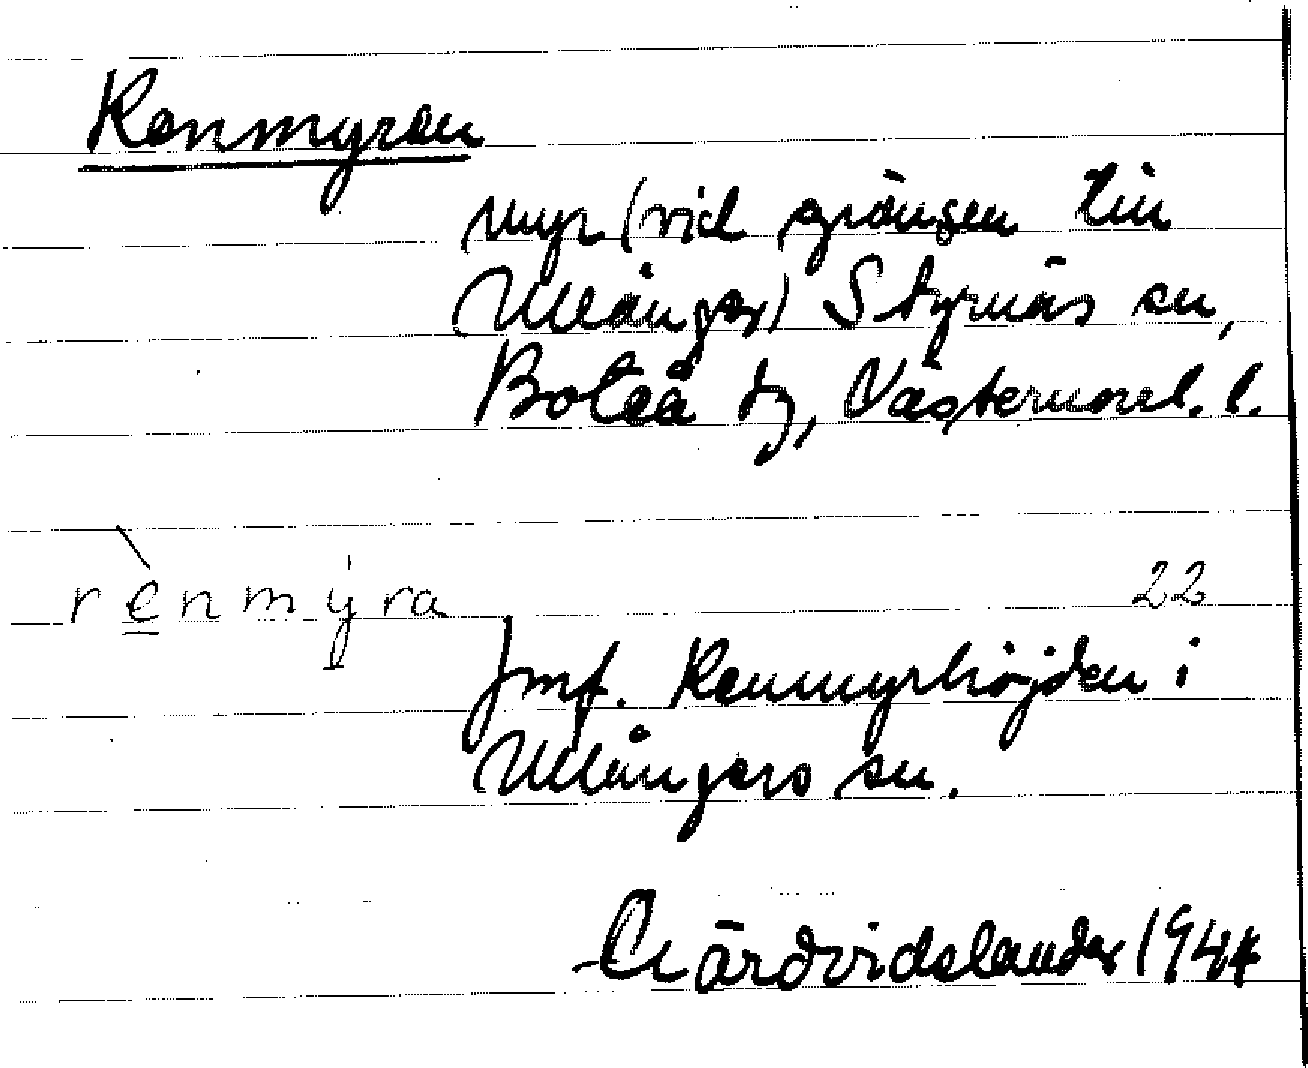 Renmyren
myr (vid gränsen till
Ullånger) Styrnäs sn,
Boteå tg, Västernorrl. l.
rènmýra 22
Jmf. Renmyrhöjden i
Ullångers sn.
Ärdvidslander 1944